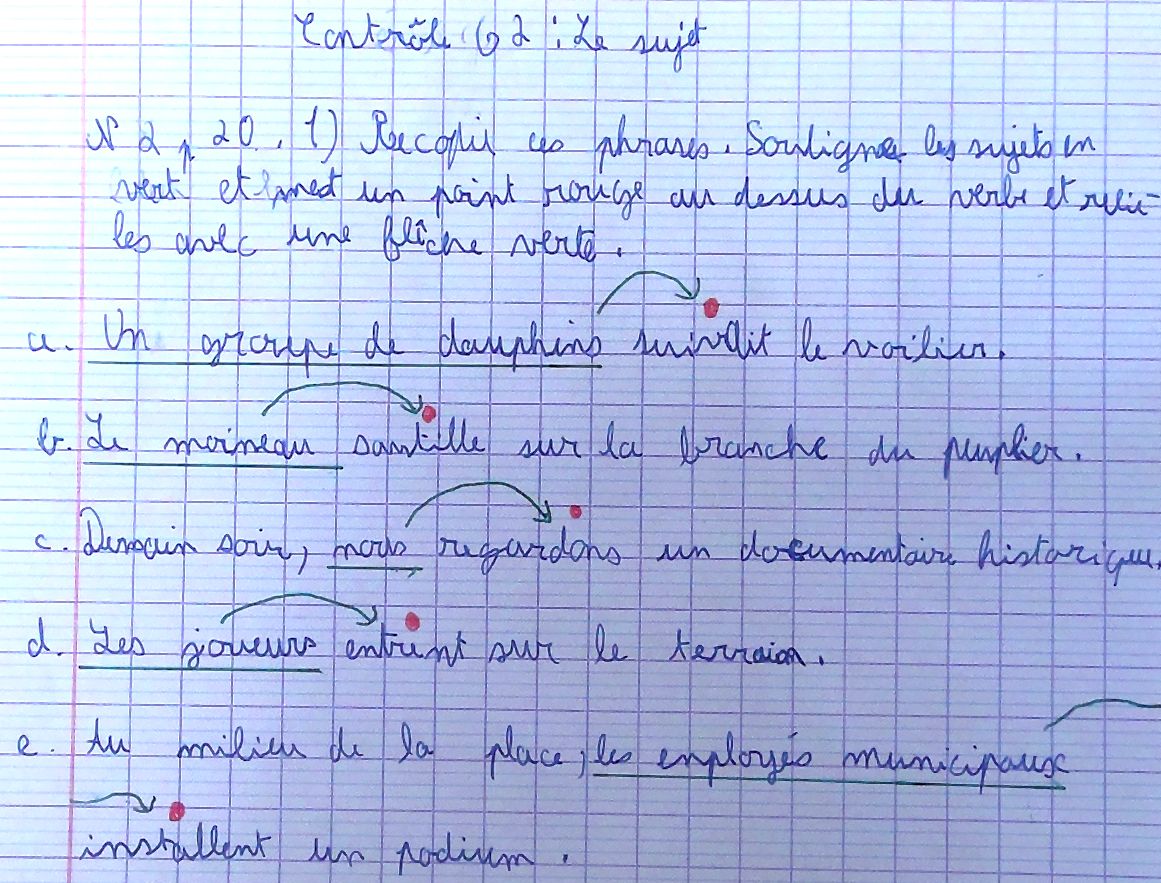 Contrôle G2 : Le sujet
N 2 p 20. 1) Recopie ces phrases. Souligne les sujets en
vert et met un point rouge au dessus du verbe et relie-
les avec une flèche verte.
a. Un groupe de dauphins suivait le voilier.
b. Le moineau sautille sur la branche du peuplier.
c. Demain soir, nous regardons un documentaire historique.
d. Les joueurs entrent sur le terrain.
e. Au milieu de la place, les employés municipaux
installent un podium.